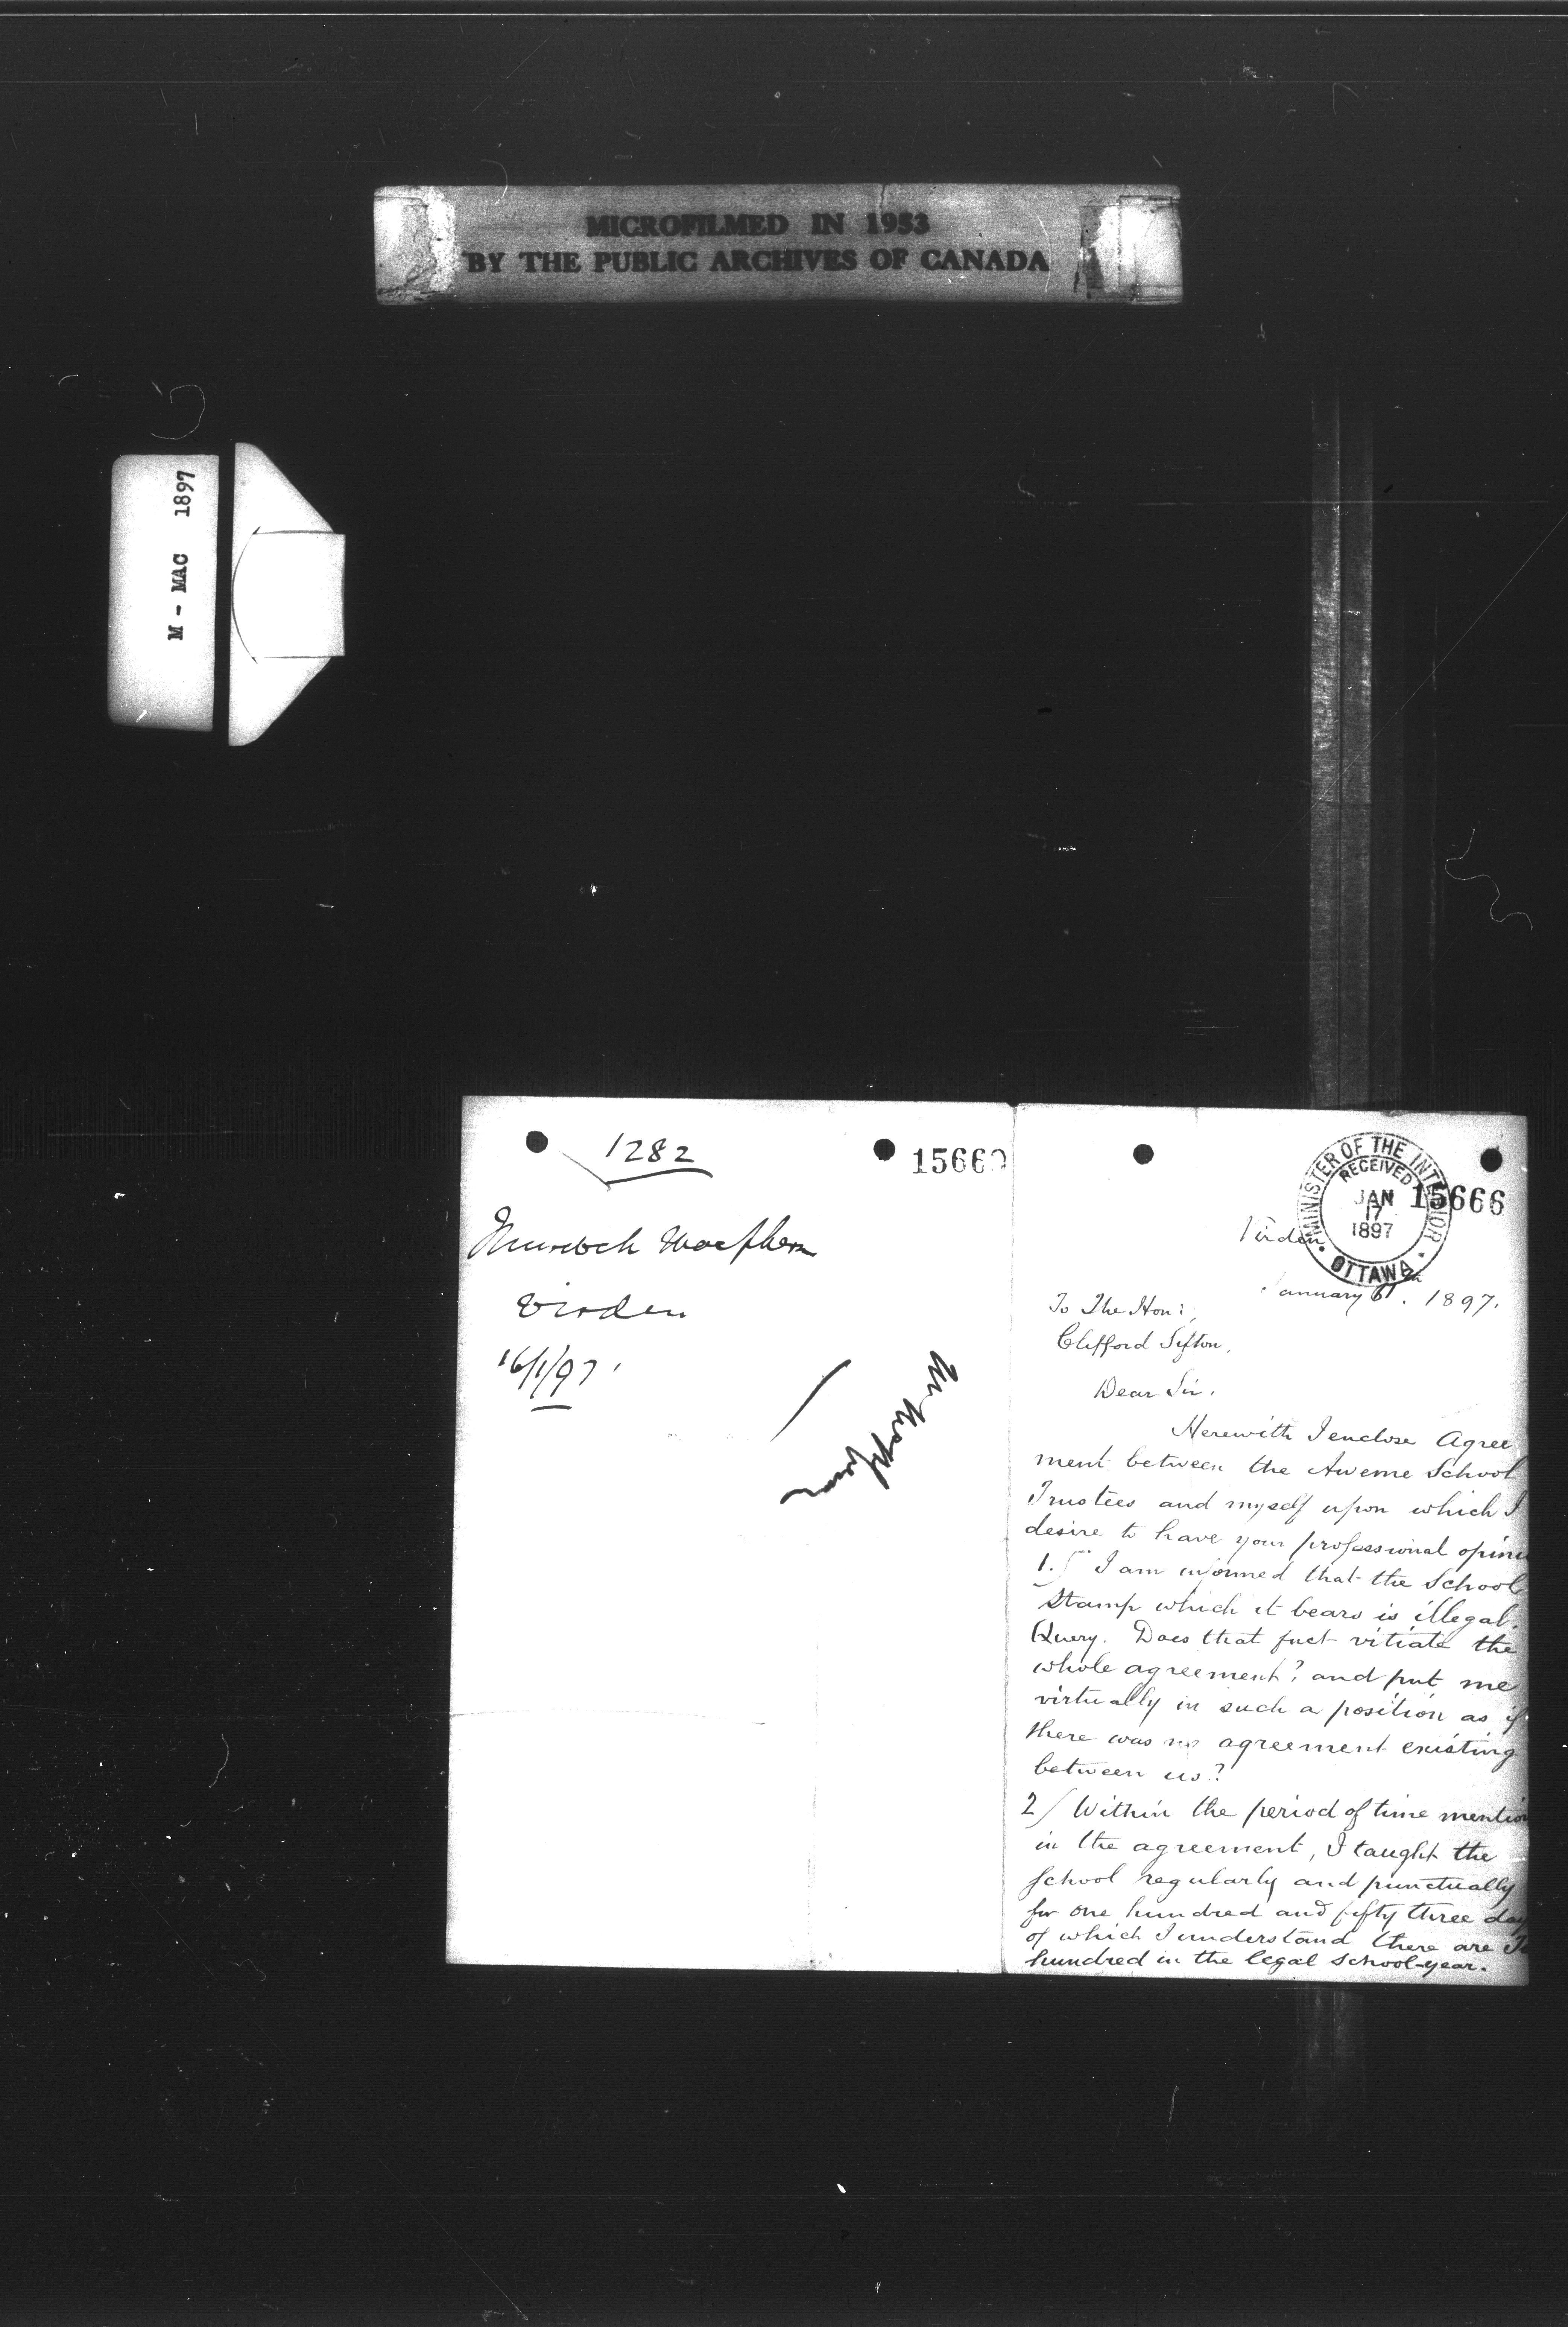 MICROFILMED IN 1953
BY THE PUBLIC ARCHIVES OF CANADA
M - MAC 1897
1282
1566
Murdoch
Virden
16/1/97
MINISTER OF THE INTERIOR
RECEIVED
JAN
17
1897
OTTAWA
15666
Virden,
January 6th. 1897.
To The Hon:,
Clifford Sifton,
Dear Sir,
Herewith I enclose Agree
ment between the Aweme School
Trustees and myself upon which I
desire to have your professional opini
1.) I am informed that the School
Stamp which it bears is illegal.
Query. Does that fact vitiate the
whole agreement? and put me
virtually in such a position as if
there was no agreement existing
between us?
2/ Within the period of time mention
in the agreement, I taught the
school regularly and punctually
for one hundred and fifty three day
of which I understand there are
hundred in the legal school-year.